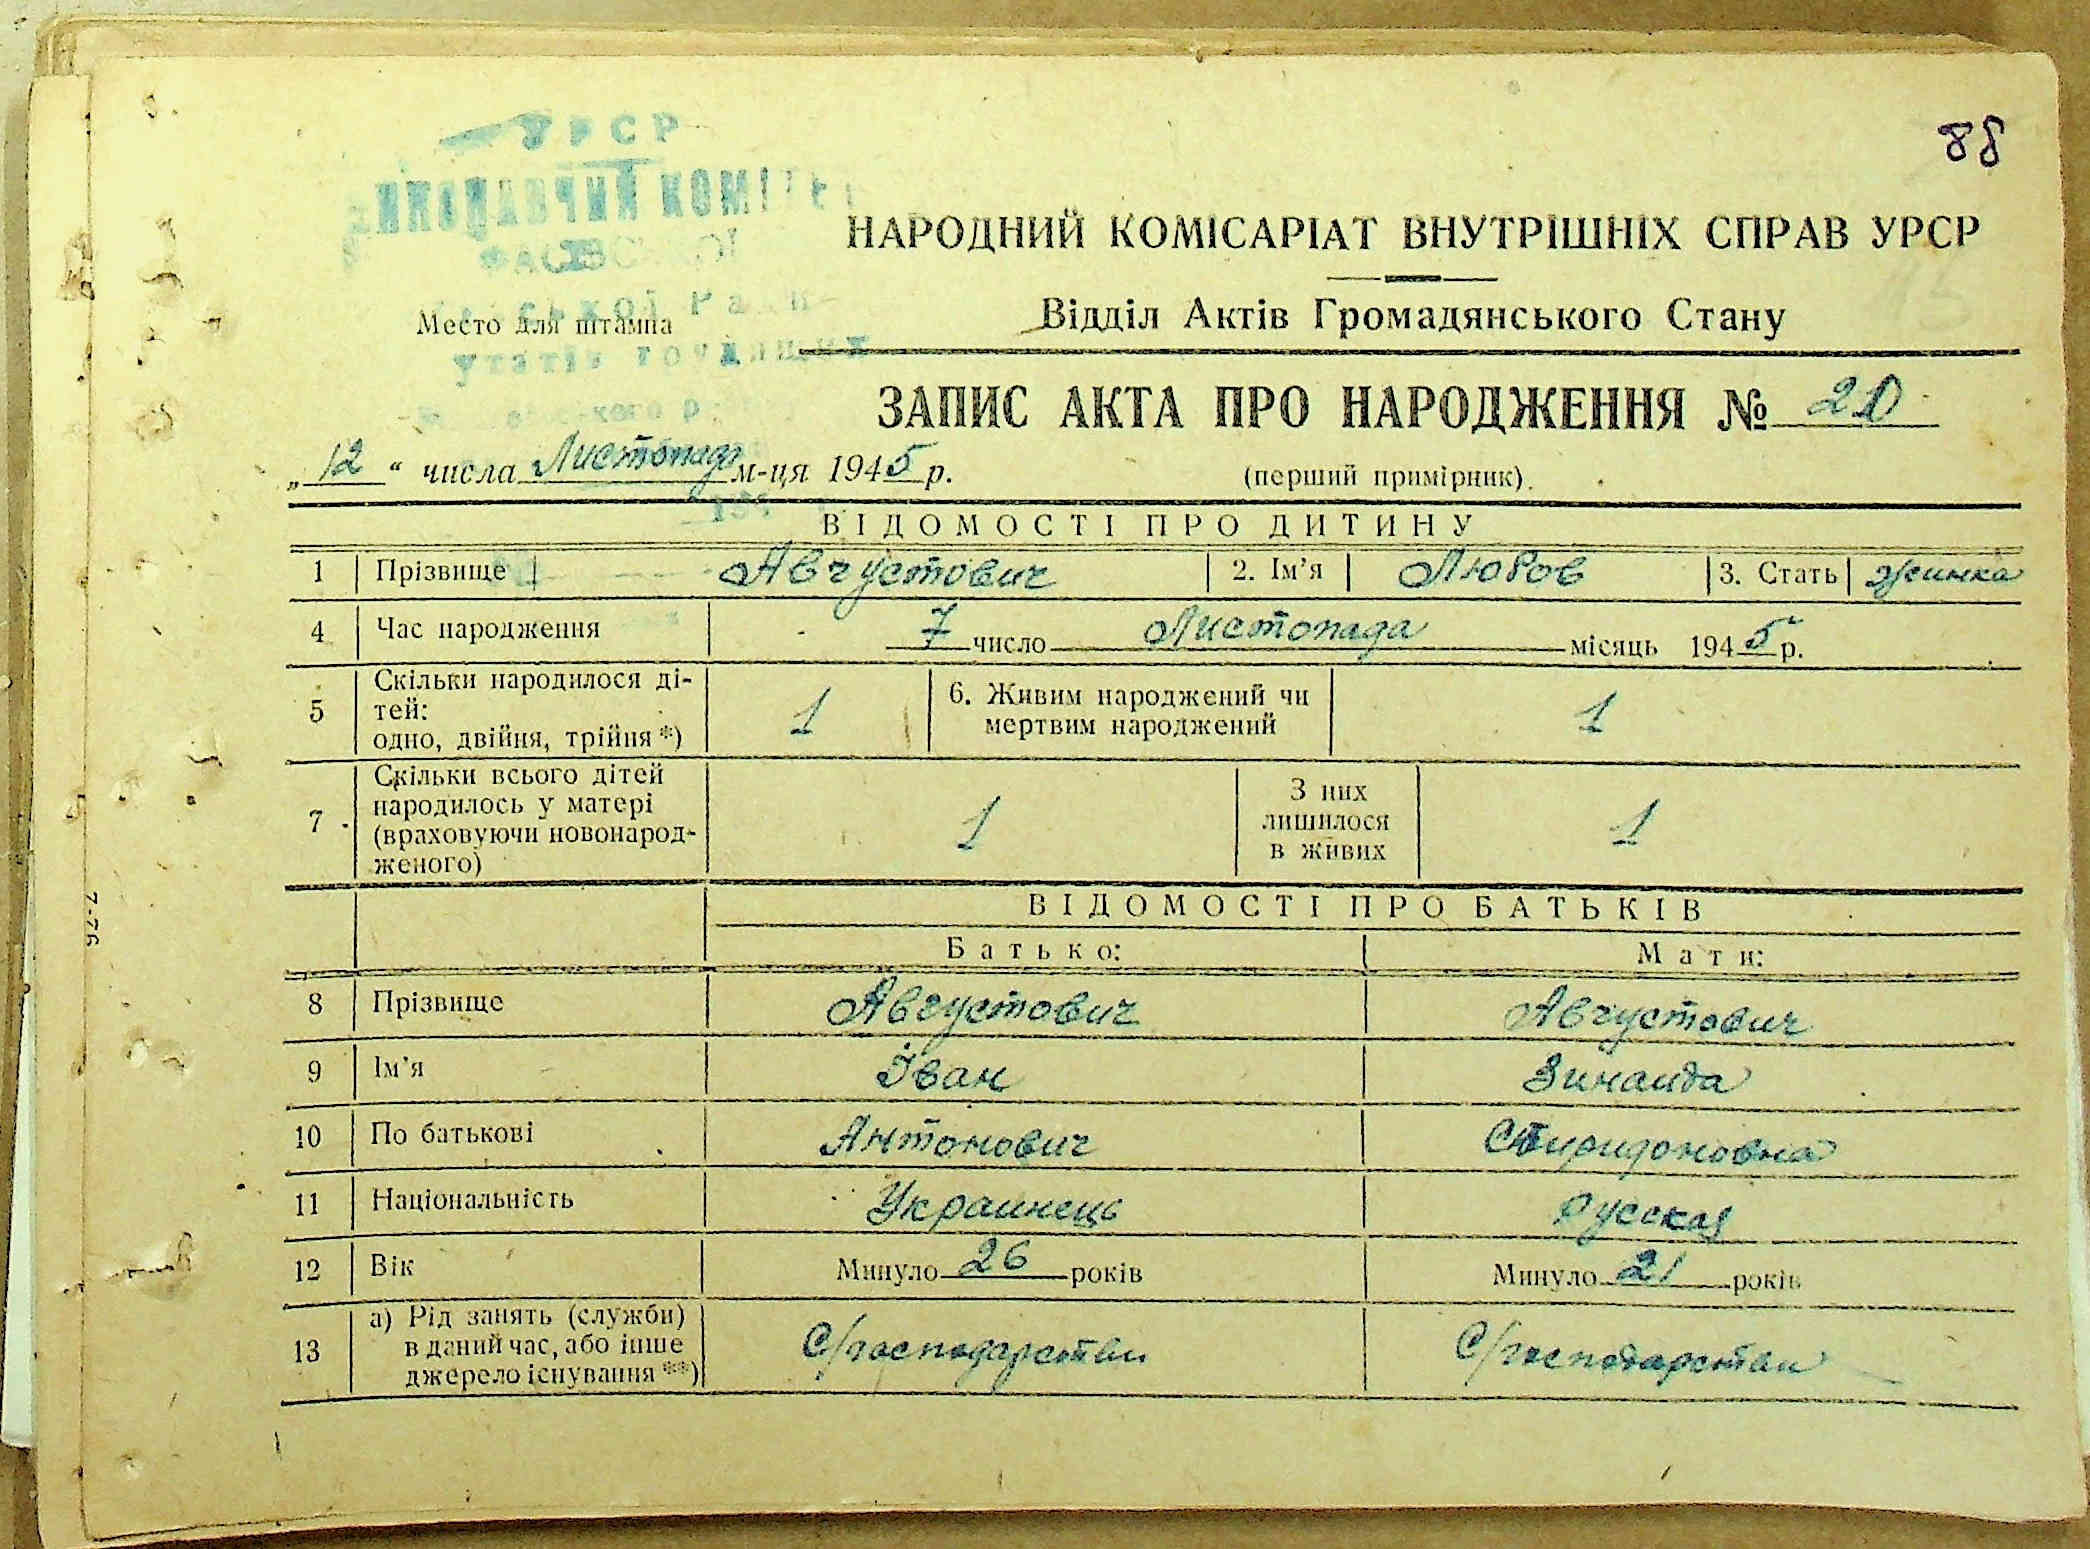 88
УРСР
НАРОДНИЙ КОМІСАРІАТ ВНУТРІШНІХ СПРАВ УРСР
Место для штампа
Відділ Актів Громадянського Стану
ЗАПИС АКТА ПРО НАРОДЖЕННЯ № 20
„12“ числа Листопада м-ця 1945 р.
(перший примірник).
ВІДОМОСТІ ПРО ДИТИНУ
1 Прізвище Августович 2. Ім’я Любов 3. Стать жинка
4 Час народження 7 число Листопада місяць 1945 р.
5 Скільки народилося ді-
тей:
одно, двійня, трійня *) 1 6. Живим народжений чи
мертвим народжений 1
7 Скільки всього дітей
народилось у матері
(враховуючи новонарод-
женого) 1 З них
лишилося
в живих 1
ВІДОМОСТІ ПРО БАТЬКІВ
Батько: Мати:
8 Прізвище Августович Августович
9 Ім’я Іван Зинаида
10 По батькові Антонович Спиридоновна
11 Національність Украинець Русская
12 Вік Минуло 26 років Минуло 21 років
13 а) Рід занять (служби)
в даний час, або інше
джерело існування **) С/господарстви С/господарстви
7-76